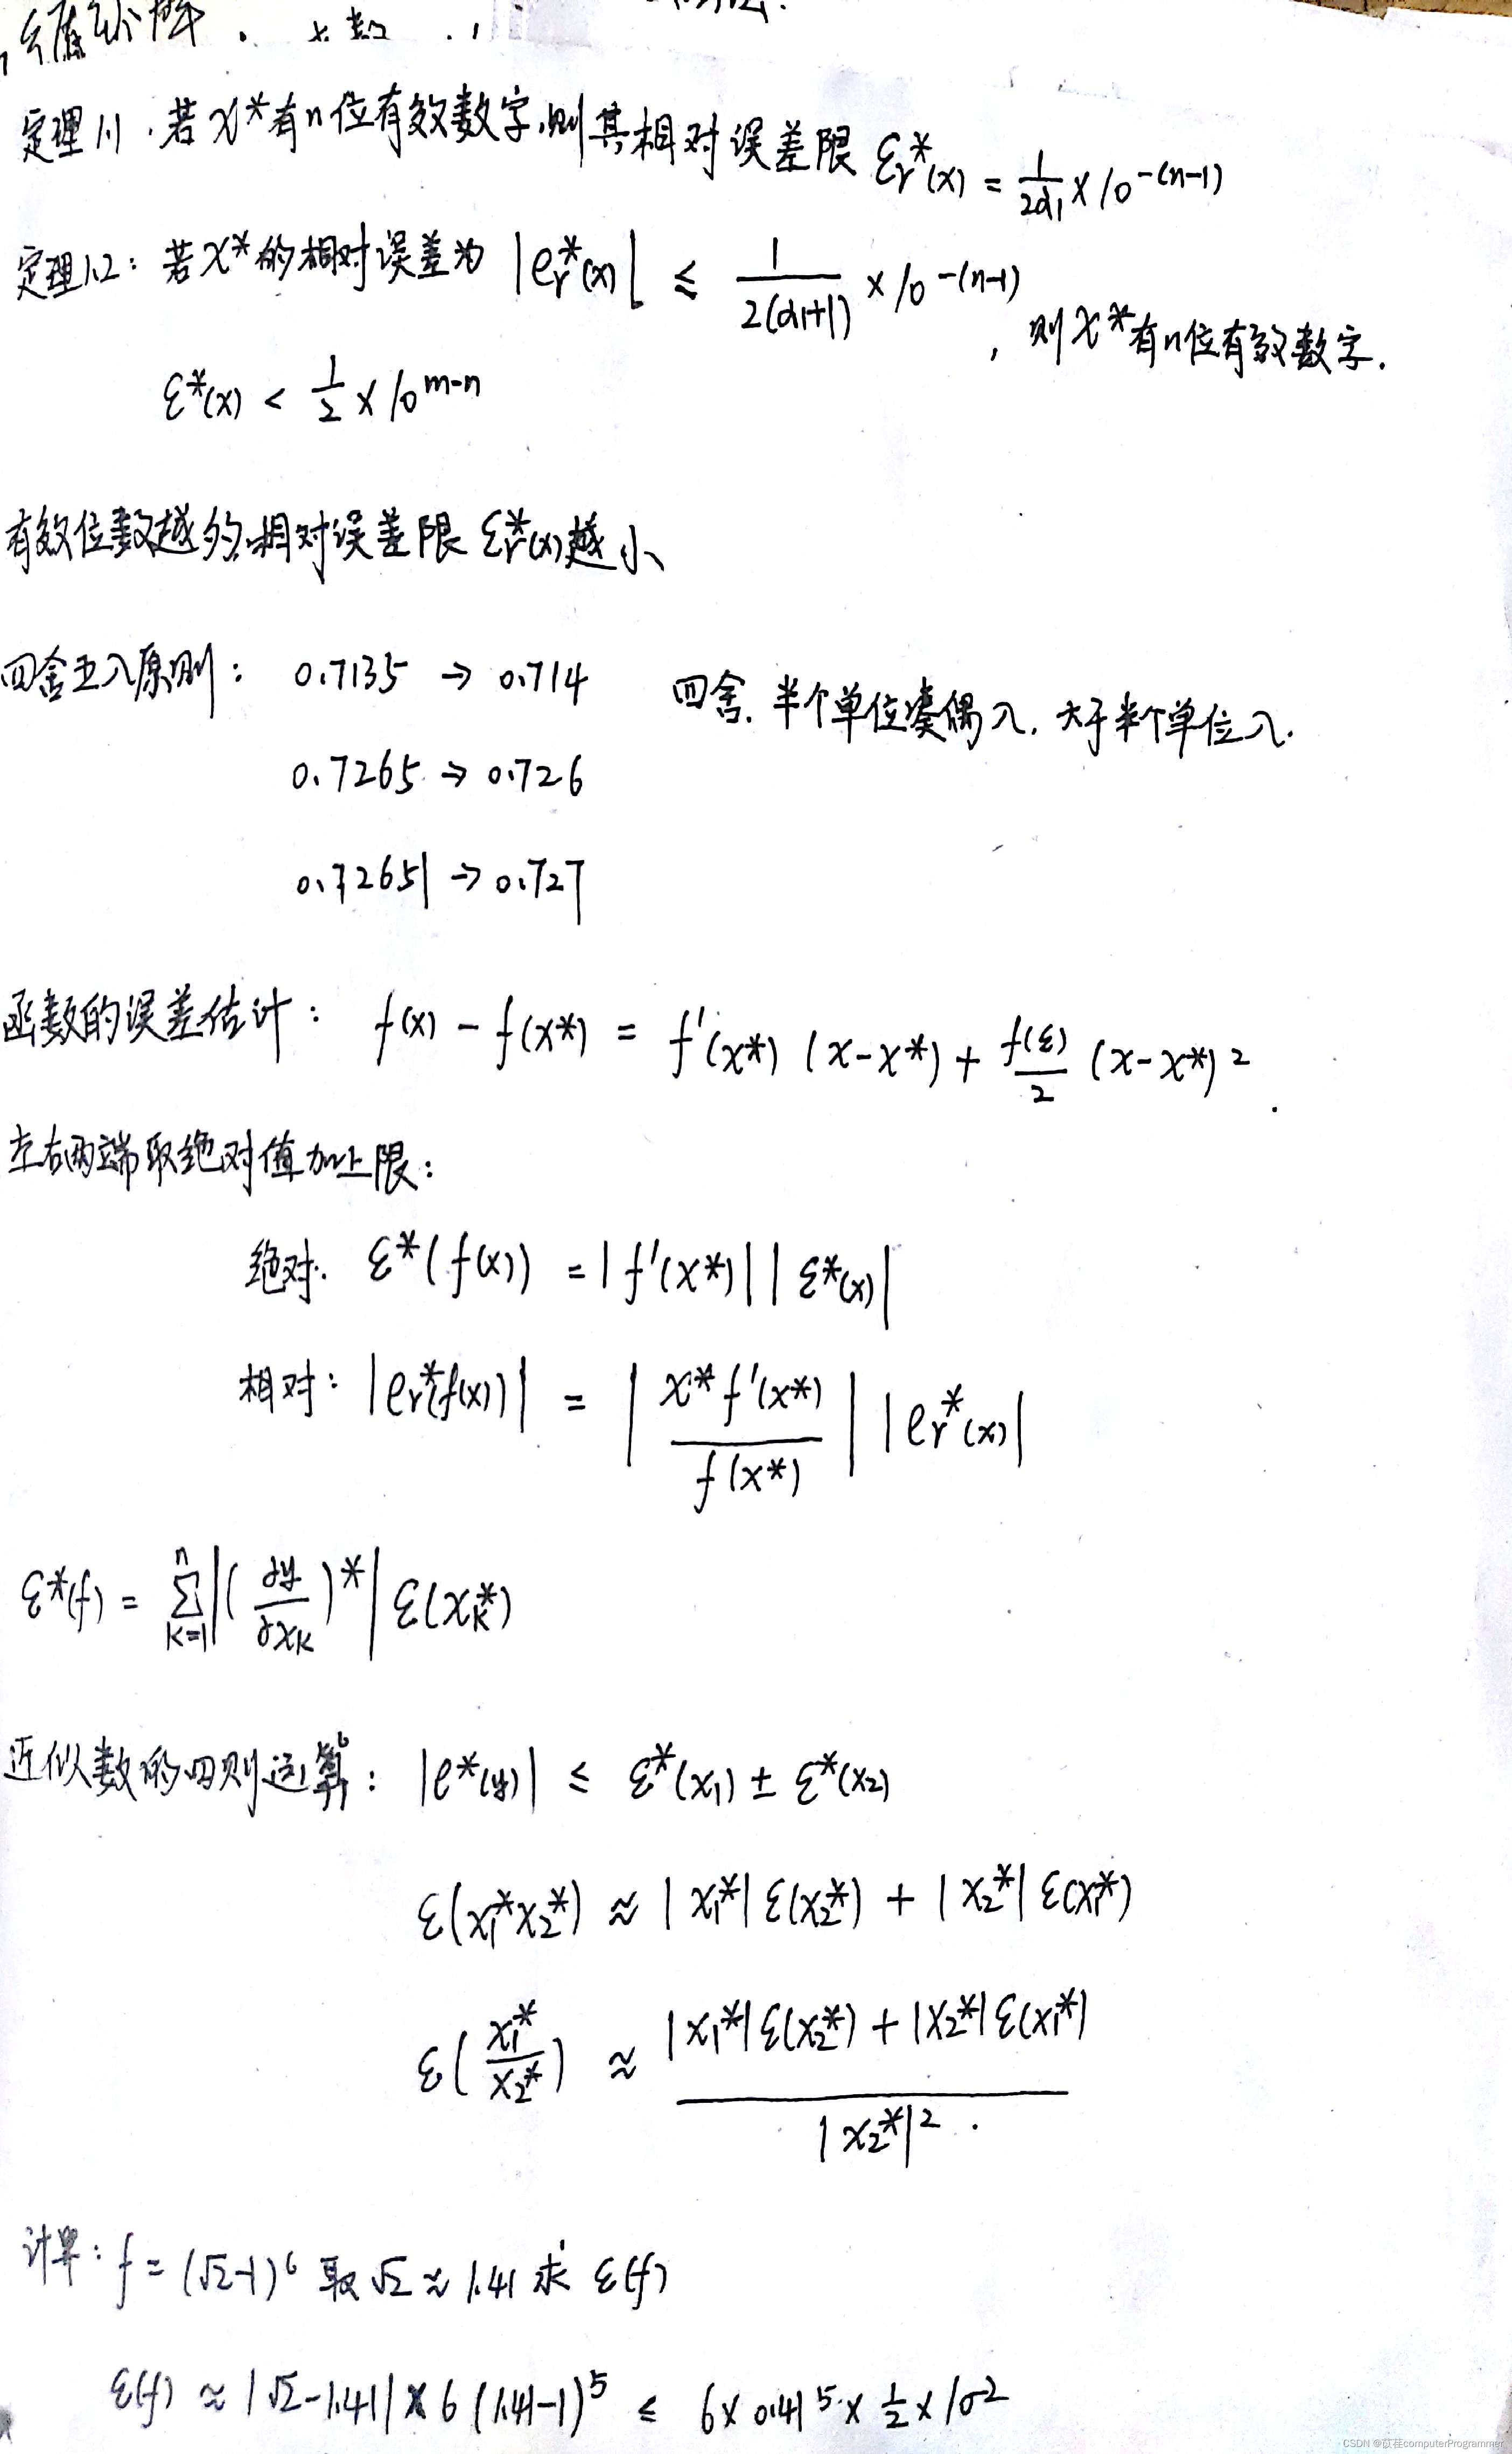 定理1.1.若x*有n位有效数字,则其相对误差限 εr*(x) = 1/(2α1) × 10^-(n-1)
定理1.2: 若x*的相对误差为 |er*(x)| ≤ 1/(2(α1+1)) × 10^-(n-1), 则x*有n位有效数字.
ε*(x) < 1/2 × 10^(m-n)
有效位数越多,相对误差限 εr*(x)越小
四舍五入原则: 0.7135 → 0.714 四舍. 半个单位凑偶入. 大于半个单位入.
0.7265 → 0.726
0.72651 → 0.727
函数的误差估计: f(x) - f(x*) = f'(x*) (x-x*) + f(ε)/2 (x-x*)^2.
左右两端取绝对值加上限:
绝对. ε*(f(x)) = |f'(x*)| |ε*(x)|
相对: |er*(f(x))| = |x* f'(x*) / f(x*)| |er*(x)|
ε*(f) = Σ_{k=1}^{n} |(∂y/∂xk)*| ε(xk*)
近似数的四则运算: |e*(y)| ≤ ε*(x1) ± ε*(x2)
ε(x1* x2*) ≈ |x1*| ε(x2*) + |x2*| ε(x1*)
ε(x1*/x2*) ≈ (|x1*| ε(x2*) + |x2*| ε(x1*)) / |x2*|^2.
计算: f = (√2-1)^6 取√2 ≈ 1.41 求 ε(f)
ε(f) ≈ |√2-1.41| × 6 (1.41-1)^5 ≤ 6 × 0.41^5 × 1/2 × 10^-2
CSDN @苡荏computerProgrammer